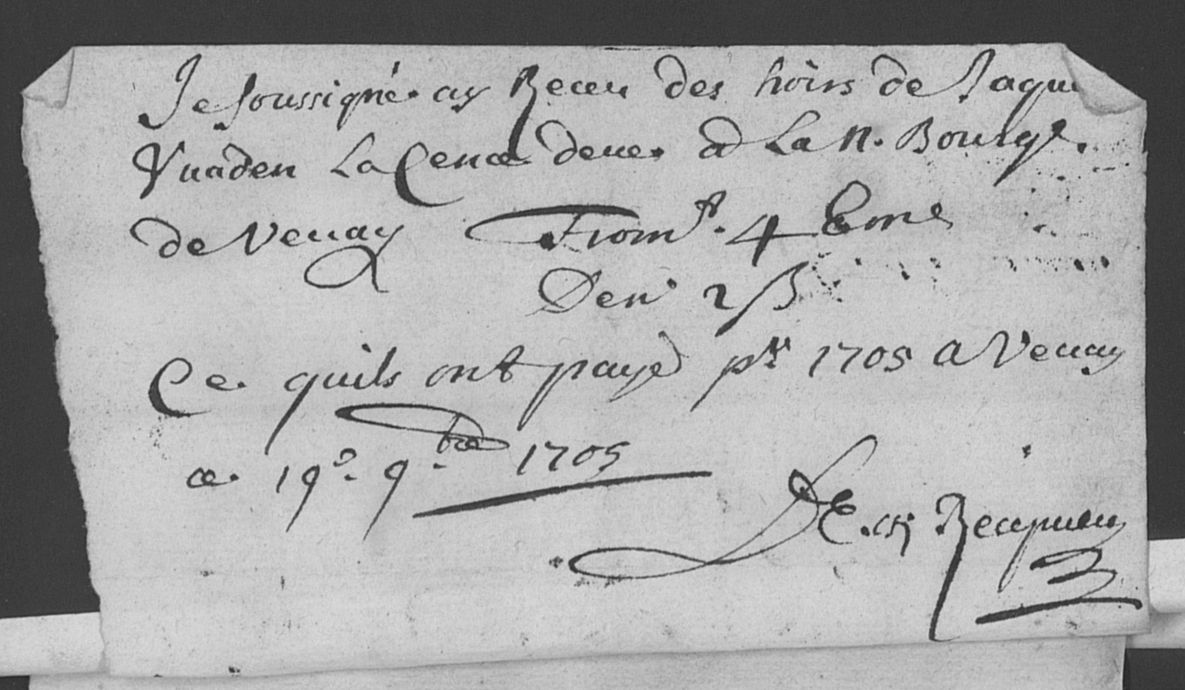 Je soussigné ay Receu des hoirs de Jaque
Vuaden La Cence deue a La n. Bourgs.
de Veuay From.t 4 Eme
Den.r 2 ß
Ce quils ont payé p.r 1705 a Veuay
ce 19.e 9.bre 1705